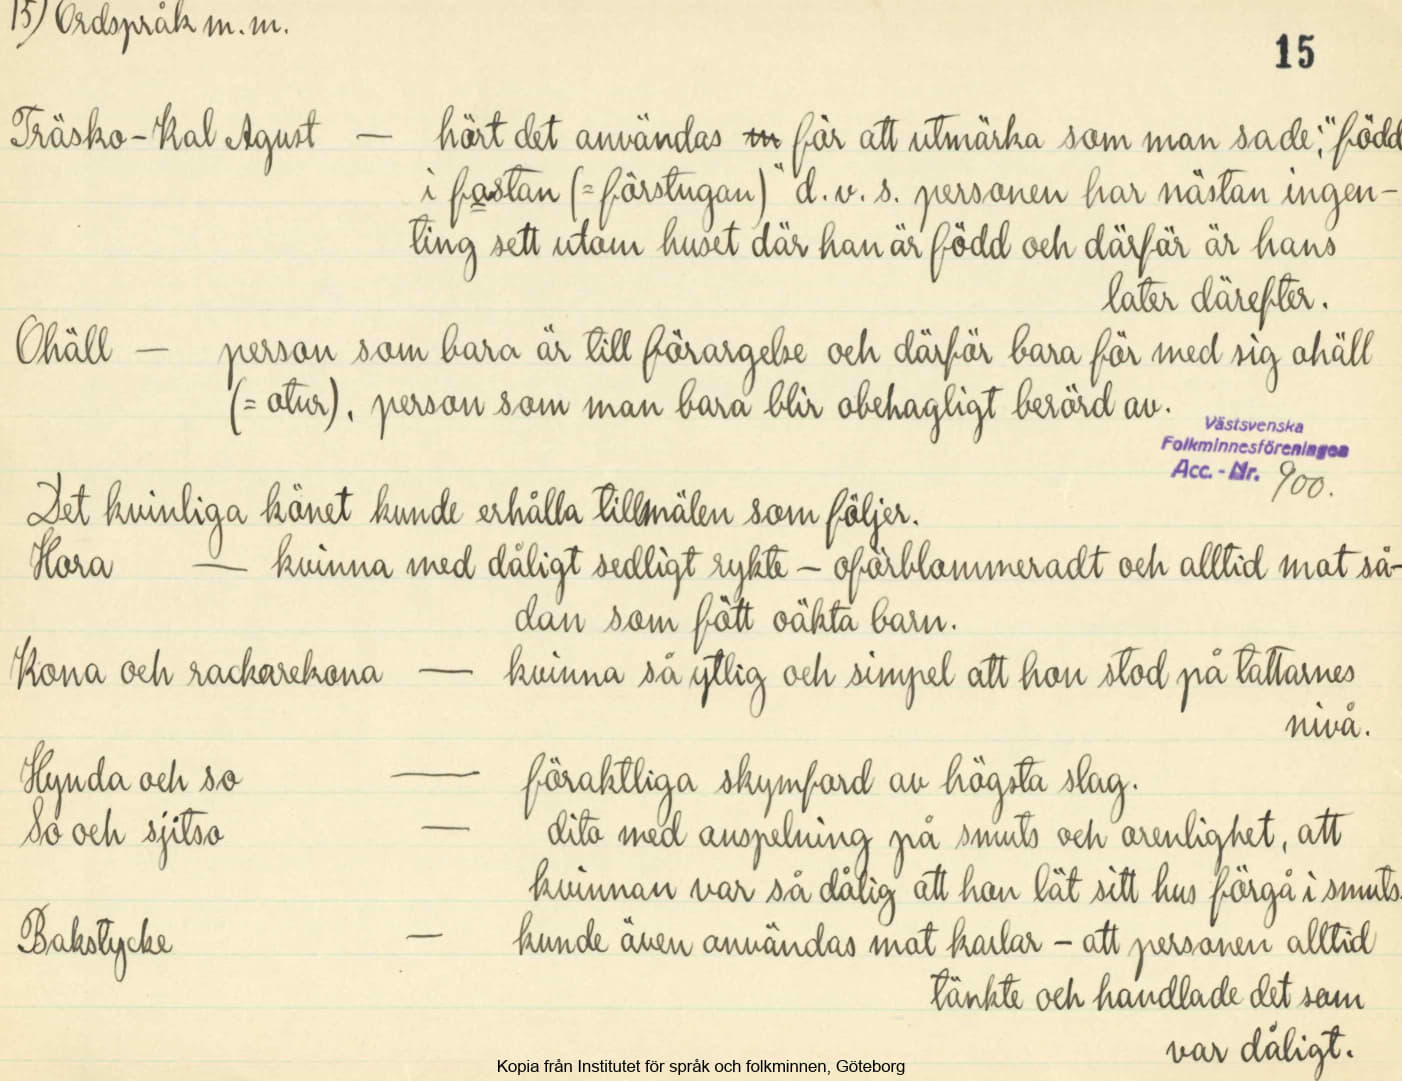 15) Ordspråk m.m.
15
Träsko-Kal Agust — hört det användas för att utmärka som man sade; "född
i fastan (= förstugan)" d.v.s. personen har nästan ingen-
ting sett utom huset där han är född och därför är hans
later därefter.
Ohäll — person som bara är till förargelse och därför bara för med sig ohäll
(= otur), person som man bara blir obehagligt berörd av.
Västsvenska
Folkminnesföreningen
Acc.-Nr. 900.
Det kvinliga könet kunde erhålla tillmälen som följer.
Hora — kvinna med dåligt sedligt rykte – oförblommeradt och alltid mot så-
dan som fött oäkta barn.
Kona och rackarekona — kvinna så ytlig och simpel att hon stod på tattarnes
nivå.
Hynda och so — föraktliga skymford av högsta slag.
So och sjitso — dito med anspelning på smuts och orenlighet, att
kvinnan var så dålig att hon lät sitt hus förgå i smuts.
Bakstycke — kunde även användas mot karlar – att personen alltid
tänkte och handlade det som
var dåligt.
Kopia från Institutet för språk och folkminnen, Göteborg